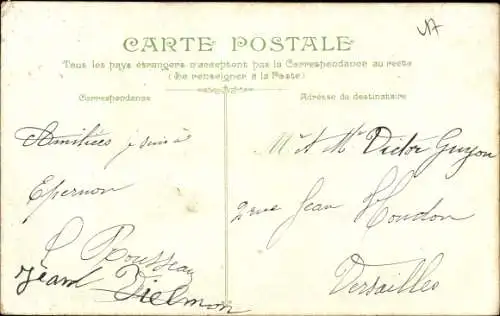 CARTE POSTALE
Tous les pays étrangers n'acceptent pas la Correspondance au recto
(Se renseigner à la Poste)
Correspondance
Adresse du destinataire
Amitiés je suis à
Epernon
Rousseau
Jean Dielmon
Mr & Mme Victor Guyon
2 rue Jean Houdon
Versailles